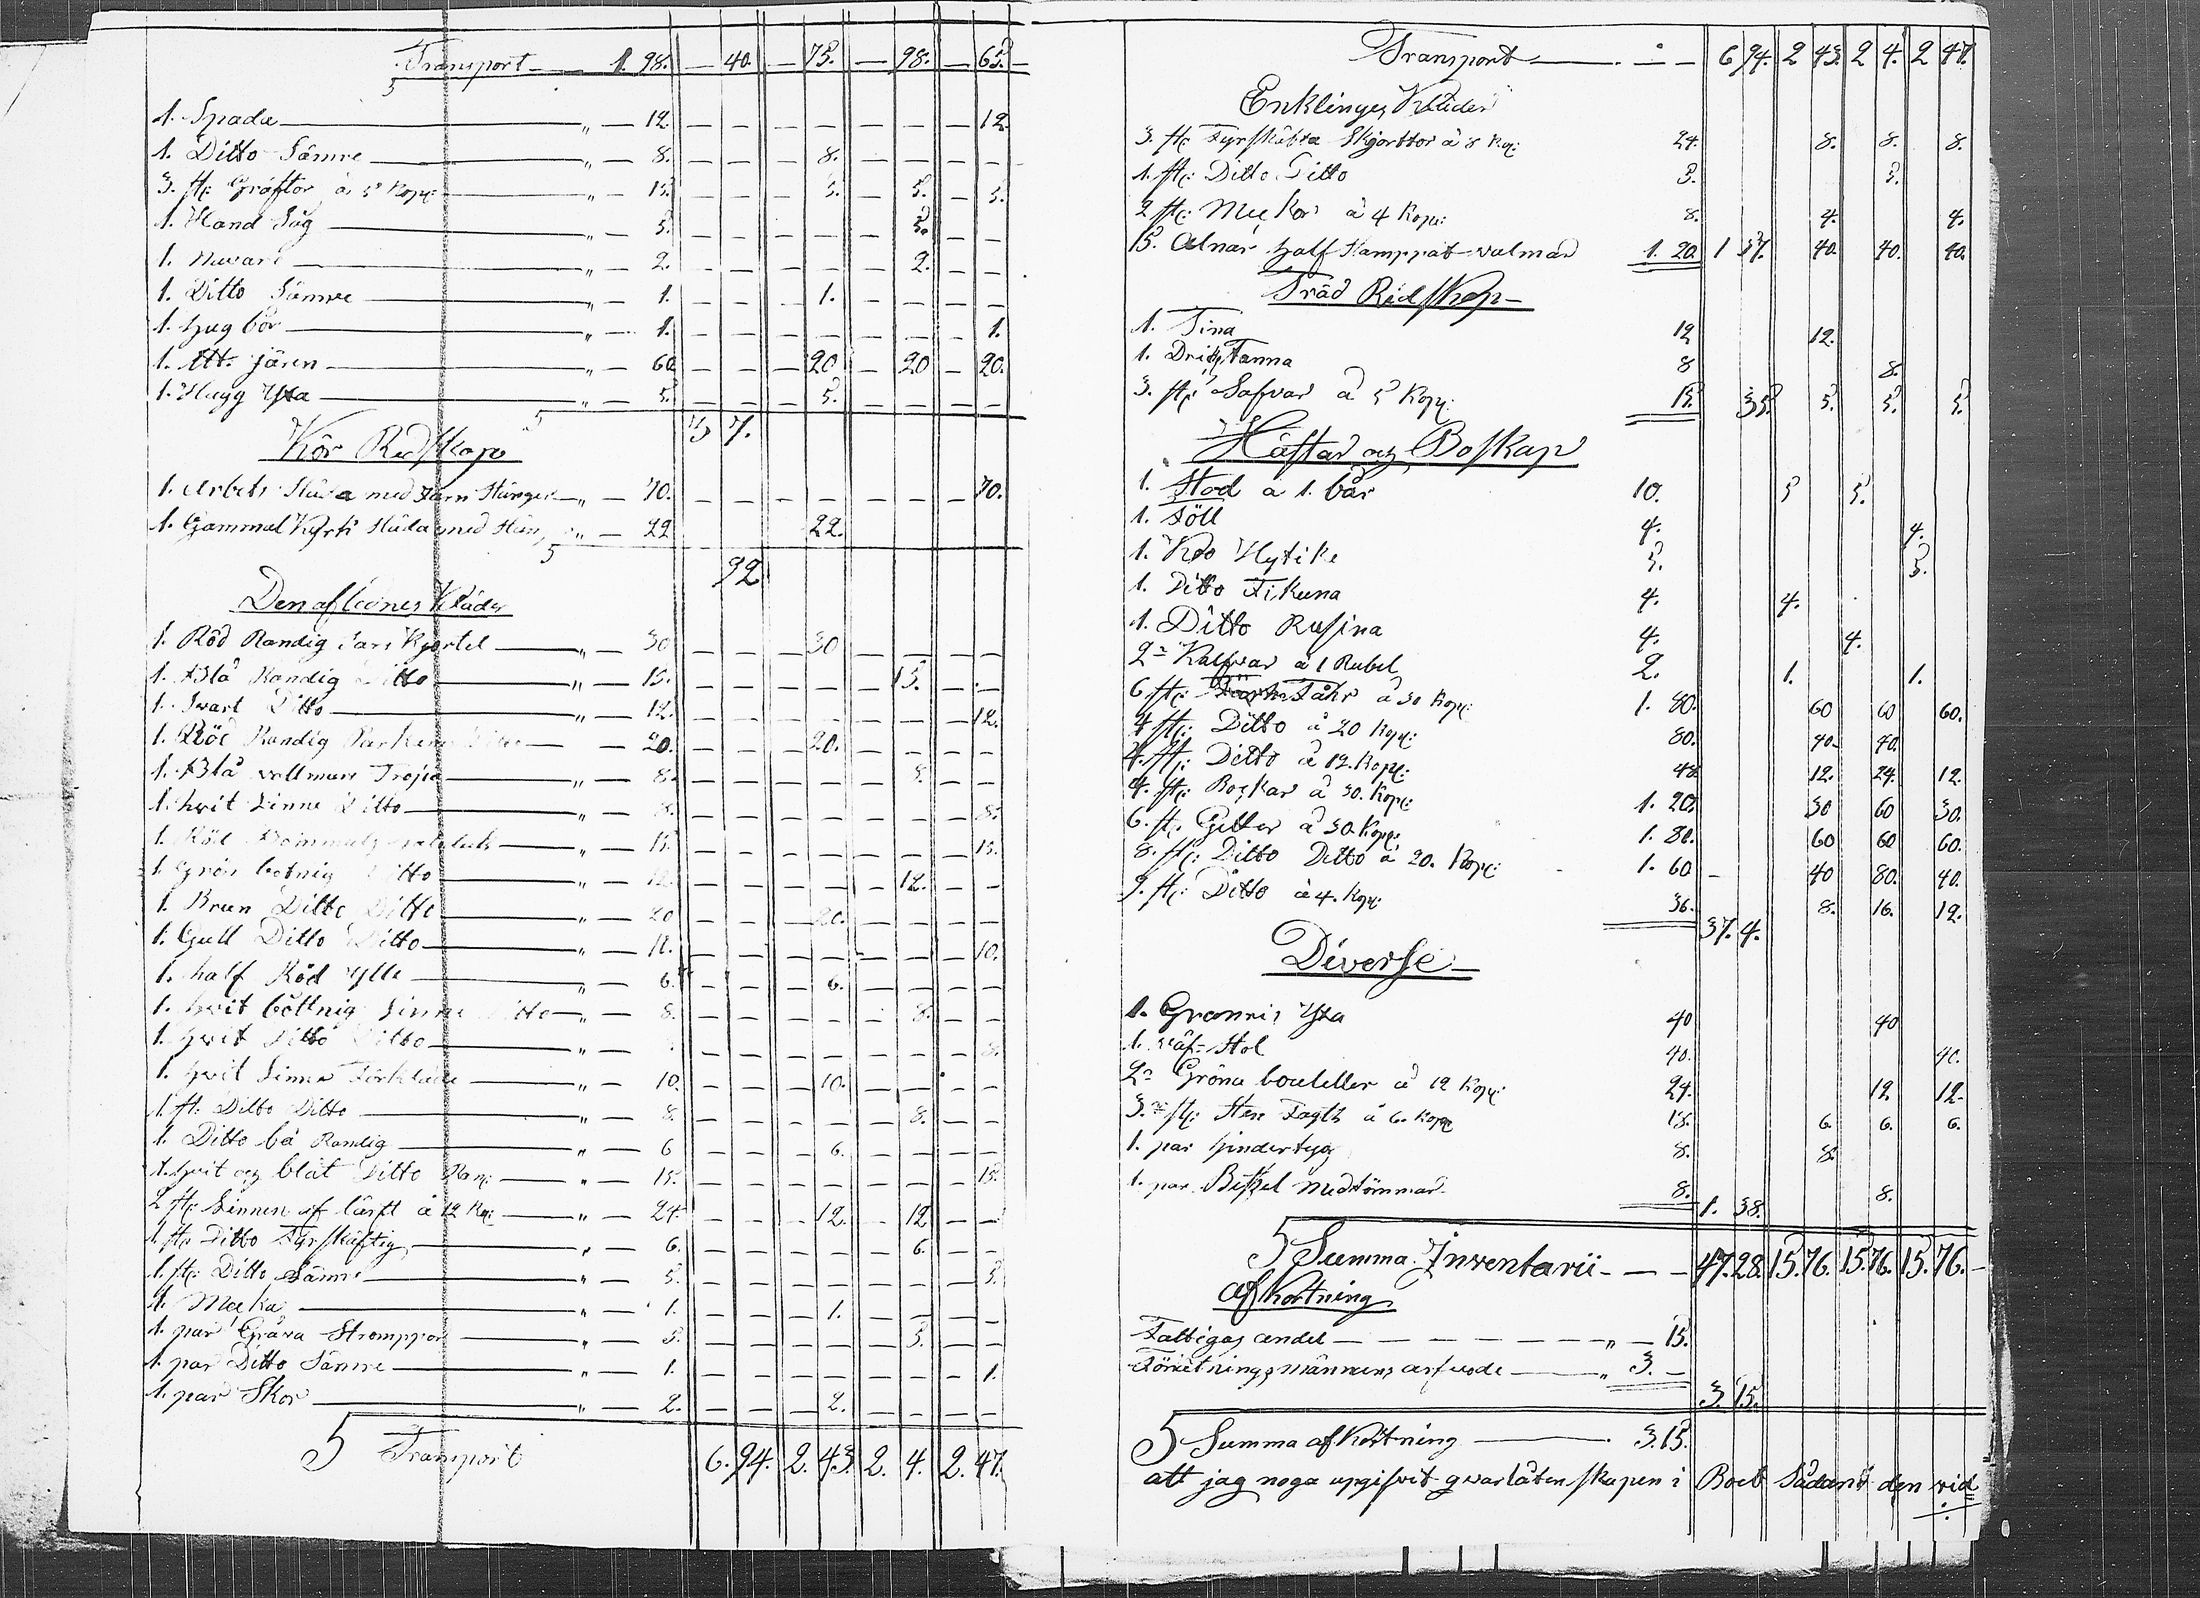 Transport — 1. 98. — 40. — 75. — 98. — 65.
1. Spada — „ — 12. 12.
1. Ditto Sämre — „ — 8. 8.
3. st: Gräftor à 5 Kop: — „ — 15. 5. 5. 5.
1. Hand Såg — „ — 5. 5.
1. Navare — „ — 2. 2.
1. Ditto Sämre — „ — 1. 1.
1. hug bor — „ — 1. 1.
1. jären — „ — 60 20 20 20.
1. Hugg Yxa — „ — 5. 5.
3 7.
Kör Redskap
1. Arbets Släda med Järn Stänger — „ — 70. 70.
1. Gammal Kyrk Släda med — „ — 22 22.
92
Den aflednes Kläder
1. Röd Randig Kjortel — „ — 30 30
1. Blå Randig Ditto — „ — 15. 15.
1. Svart Ditto — „ — 12. 12.
1. Röd Randig — 20. 20.
1. Blå vallman Tröja — „ — 8. 8.
1. hvit Linne Ditto — „ — 8. 8.
1. Röd — „ — 15. 15.
1. Grön botnig Ditto — „ — 12. 12.
1. Brun Ditto Ditto — „ — 20 20.
1. Gull Ditto Ditto — „ — 10. 10.
1. half Röd Ylle — „ — 6. 6.
1. hvit bottnig Linne Ditto — „ — 8. 8.
1. hvit Ditto Ditto — „ — 8.
1. hvit Linne Förkläde — „ — 10. 10.
1. st: Ditto Ditto — „ — 8. 8.
1. Ditto bå Randig — „ — 6 6.
1. hvit och blåt Ditto Ran: — „ — 15. 15.
2 st: Linnen af lärft à 12 Kop: — „ — 24. 12. 12
1. st: Ditto Fyrskäftig — „ — 6. 6.
1. st: Ditto Sämre — „ — 5. 5.
1. Mücka — „ — 1. 1.
1. par Gråva Stromppor — „ — 5. 5.
1. par Ditto Sämre — „ — 1. 1.
1. par Skor — „ — 2. 2.
Transport 6. 94. 2. 43. 2. 4. 2. 47.
Transport — 6 94. 2 43. 2 4. 2 47.
Enklinges Kläder
3. st: Fyrskäfta Skjorttor à 8 Kop: 24. 8. 8. 8.
1. st: Ditto Ditto 5. 5.
2 st: Myckor à 4 Kop: 8. 4. 4.
15. Alnar half Stamppat valmar 1. 20. 1 57. 40. 40. 40.
Träd Redskap
1. Tina 12 12.
1. Dricks Kanna 8 8.
3. st: Safvar à 5 Kop: 15. 35. 5. 5. 5.
Hästar och Boskap
1. Stod à 1. bår 10. 5 5.
1. Föll 4. 4.
1. Ko Hytike 5. 5.
1. Ditto Fikuna 4. 4.
1. Ditto Rusina 4. 4.
2 Kalfvar à 1 Rubel 2. 1. 1.
6. st: Fåhr à 30 Kop: 1. 80. 60 60 60.
4 st: Ditto à 20 Kop: 80. 40 40.
4. st: Ditto à 12. Kop: 48 12. 24. 12.
4. st: Bockar à 30. Kop: 1. 20. 30 60 30.
6. st. Getter à 30. Kop: 1. 80. 60 60 60.
8. st: Ditto Ditto à 20. Kop: 1. 60 40 80. 40.
9. st: Ditto à 4. Kop: 36. 8. 16. 12.
37. 4.
Diverse
1. Grannis Yxa 40 40
1. Väf-Stol 40. 40.
2 Gröna bouteller à 12 Kop: 24. 12 12
3. st: Sten à 6. Kop: 18. 6. 6. 6.
1. par hindertyg 8. 8.
1. par Bitzel med tömmar 8. 8.
1. 38.
Summa Inventarii — 47. 28. 15. 76. 15. 76. 15. 76.
Afkortning
Fattigas andel — „ — 15.
Förrettningsmännens arfvode — „ 3. —
3. 15.
Summa afkortning — 3. 15.
att jag noga upgifvit qvarlåtenskapen i Boet Sådant den vid